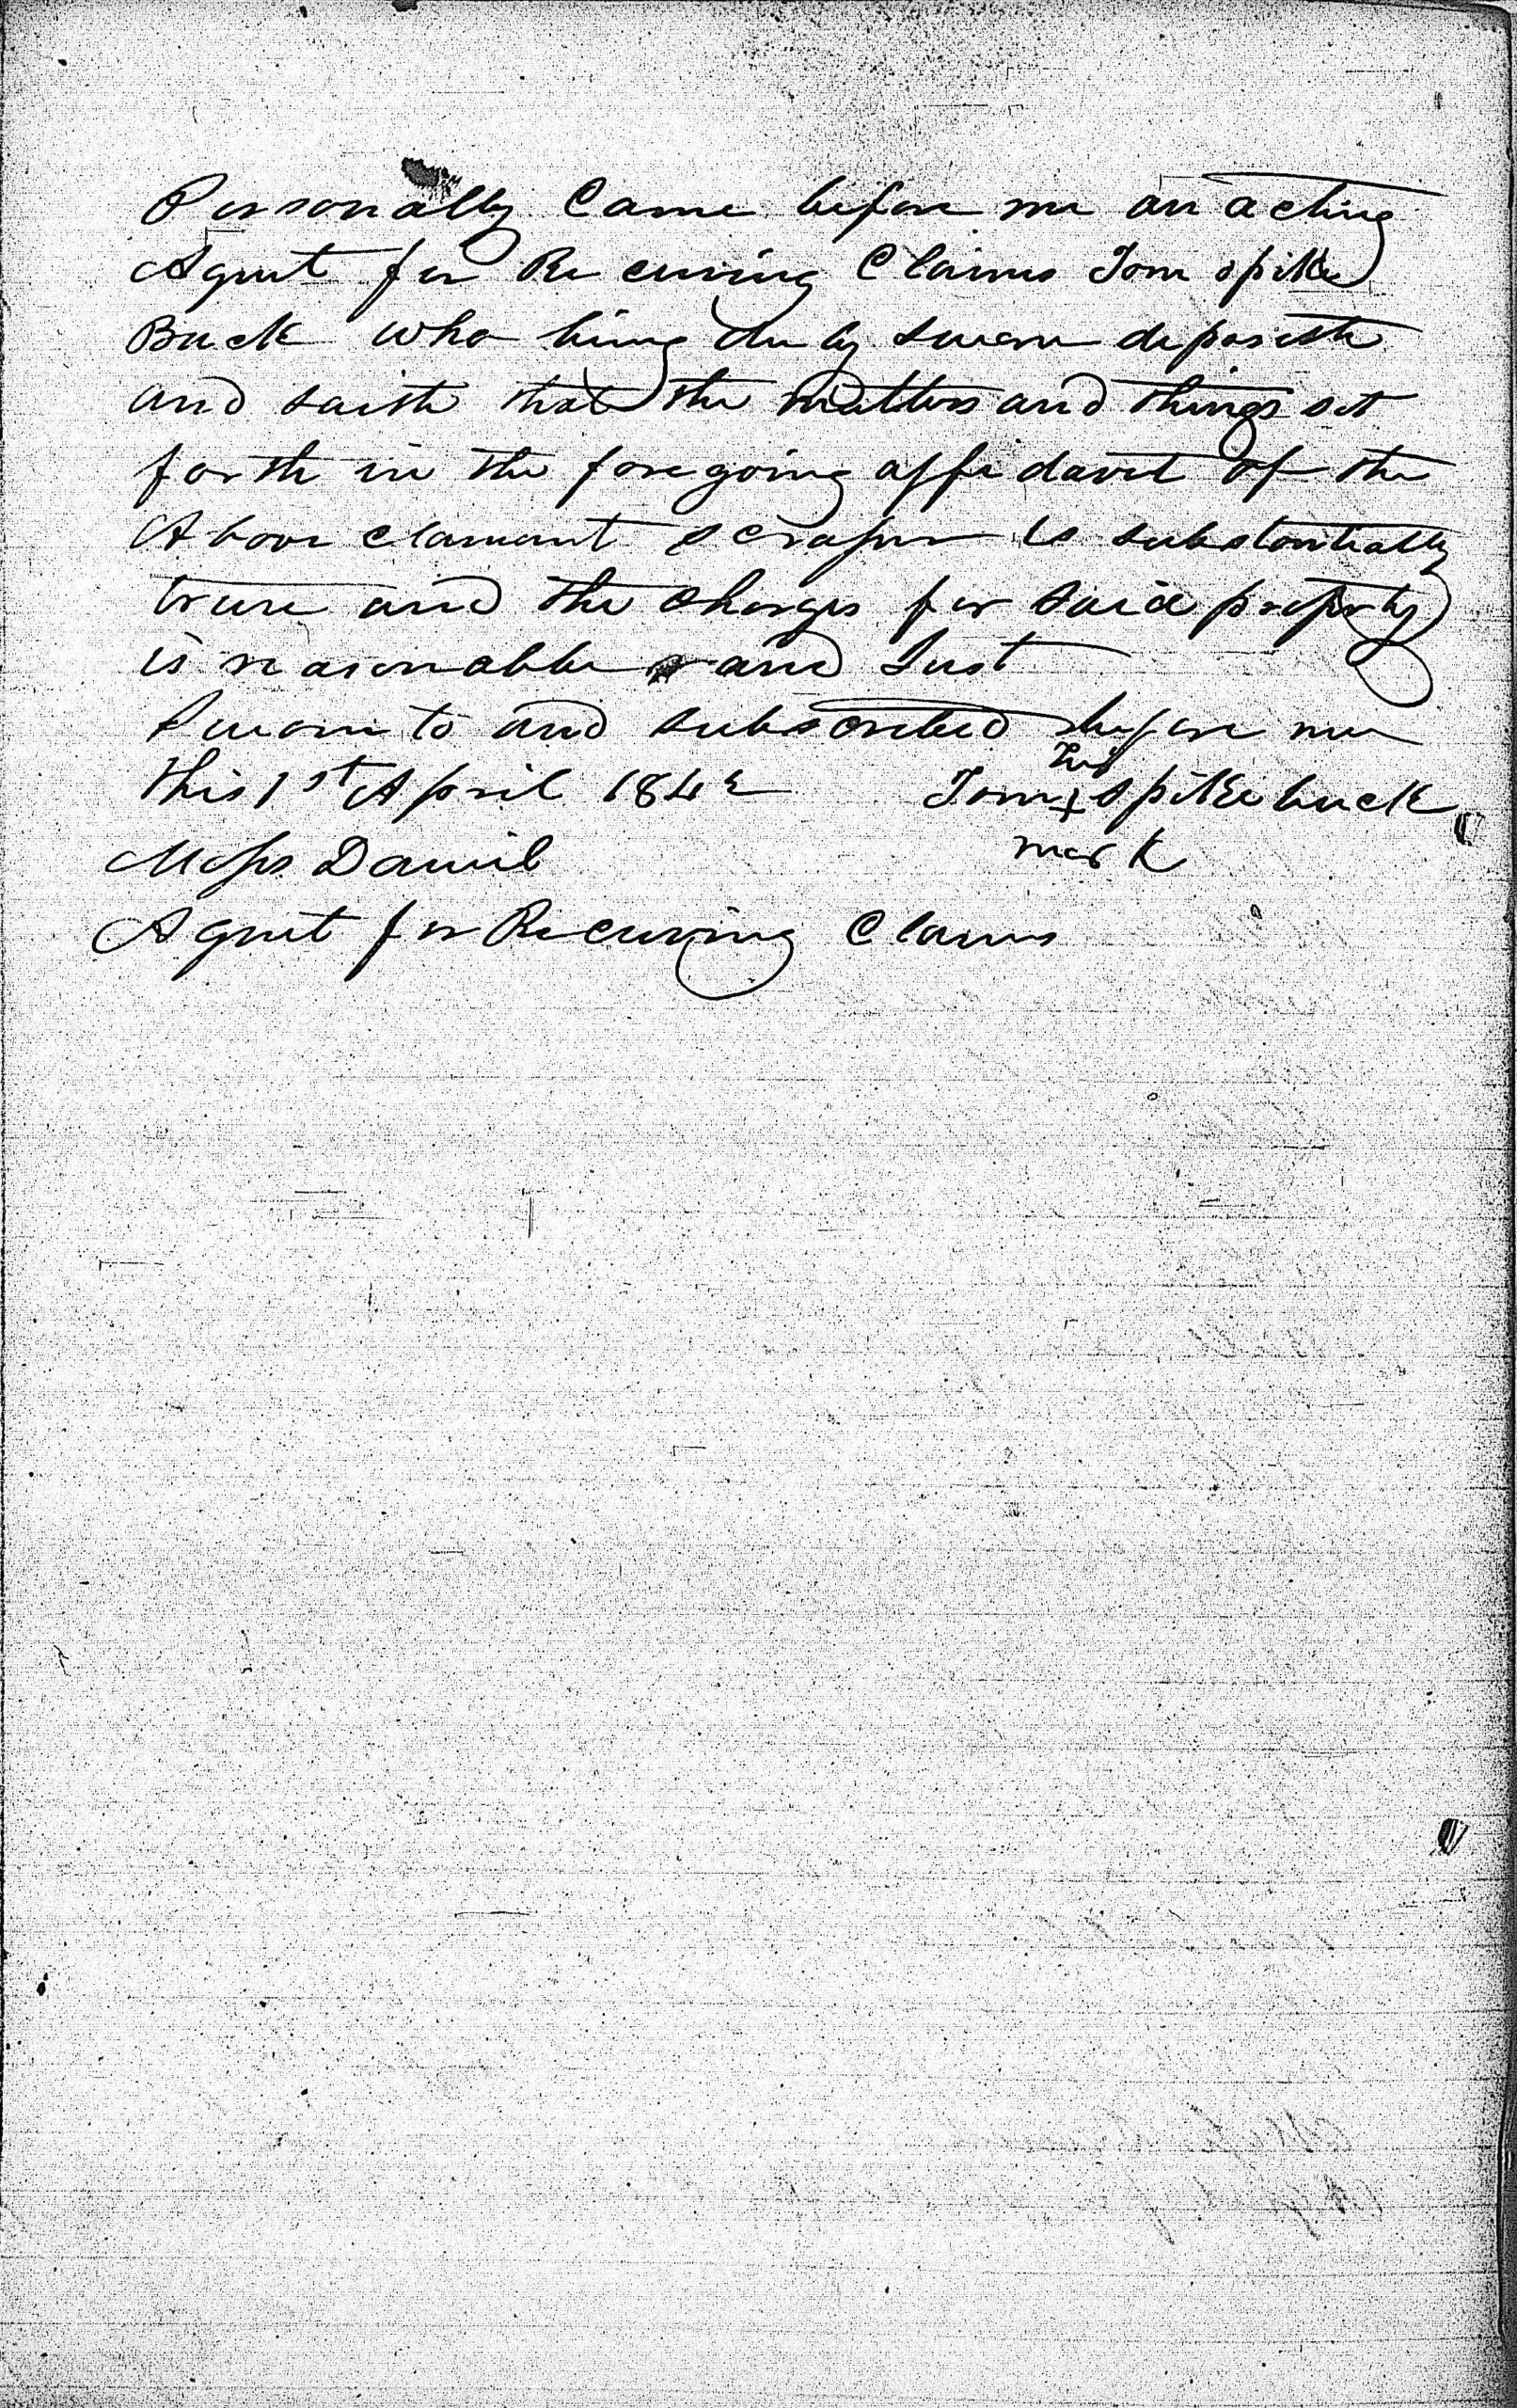 Personally Came before me an acting
Agent for Receiving Claims Tom spike
Buck who being duly sworn deposeth
and saith that the matters and things set
forth in the foregoing affidavit of the
Above clamant scraper is substantially
true and the charges for said property
is reasonable and Just
Sworn to and subscribed before me
this 1st April 1842 Tom his x spikebuck
mark
Moses Daniel
Agent for Receiving Claims